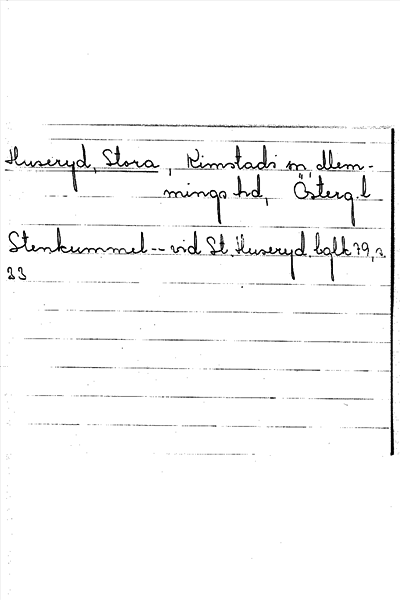 Huseryd, Stora, Kimstads sn Mem-
mings hd, Österg.l
Stenkummel -- vid St. Huseryd. bglk 79, s.
33